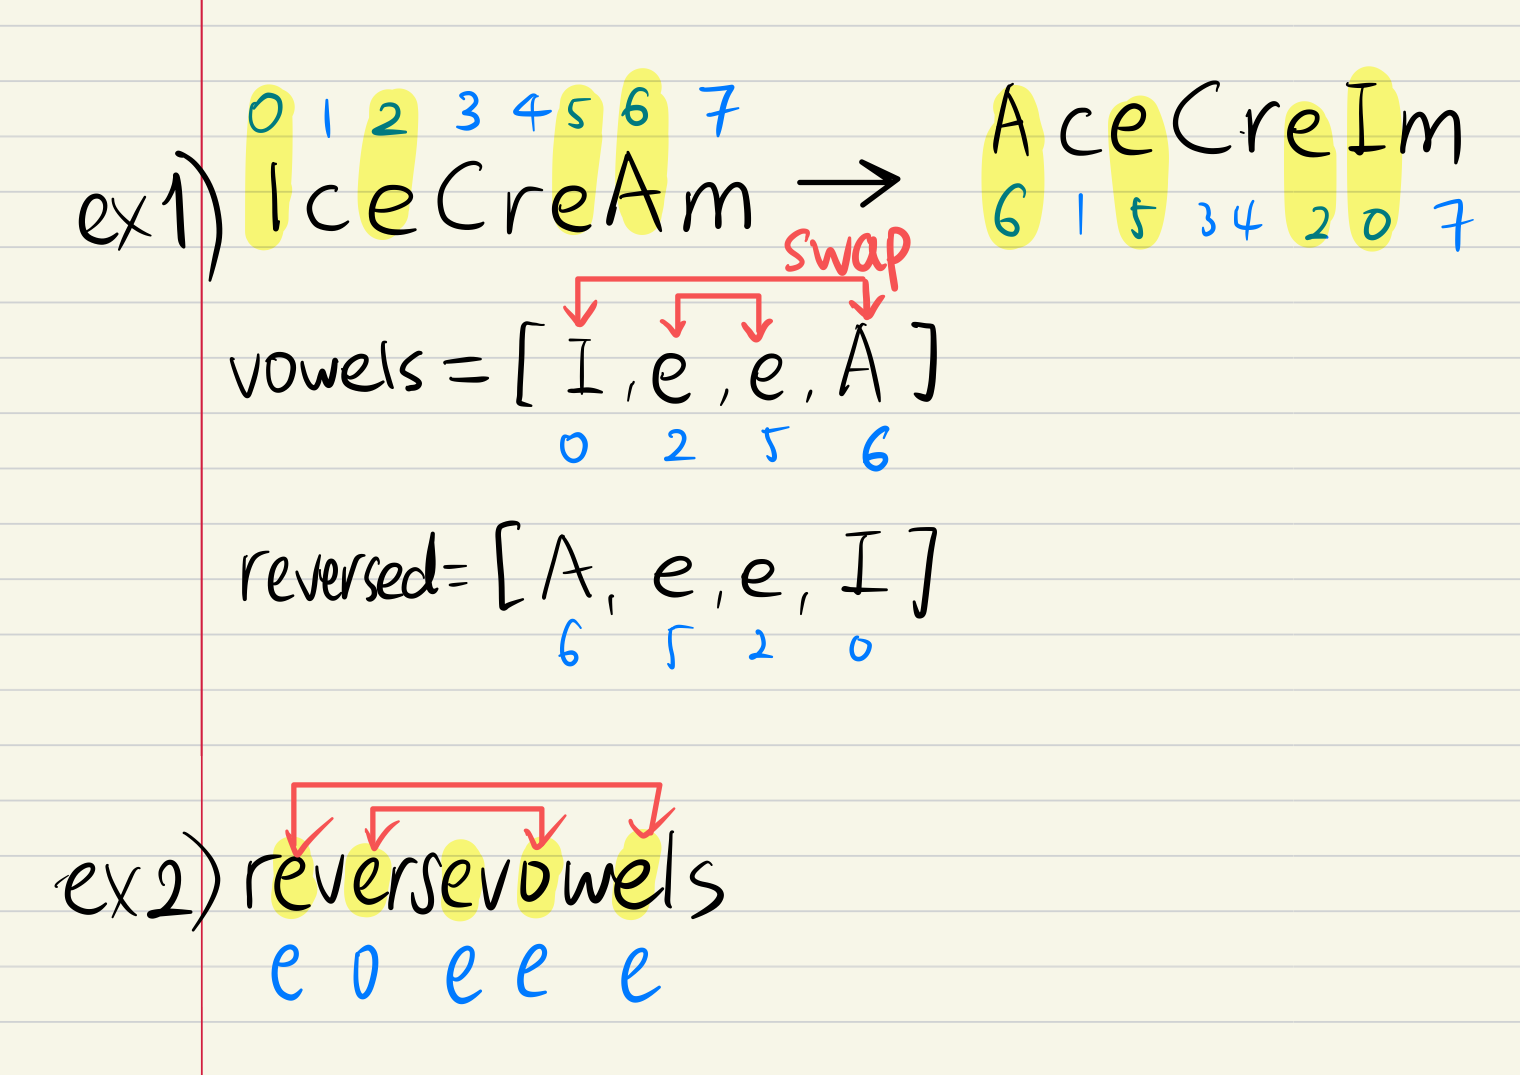 0 1 2 3 4 5 6 7
ex1) IceCreAm → AceCreIm
6 1 5 3 4 2 0 7
swap
vowels = [ I, e, e, A ]
0 2 5 6
reversed = [ A, e, e, I ]
6 5 2 0
ex2) reversevowels
e o e e e